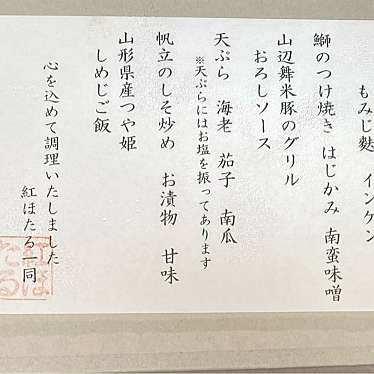 もみじ麩 インゲン
鰤のつけ焼き はじかみ 南蛮味噌
山辺舞米豚のグリル
おろしソース
天ぷら 海老 茄子 南瓜
※天ぷらにはお塩を振ってあります
帆立のしそ炒め お漬物 甘味
山形県産つや姫
しめじご飯
心を込めて調理いたしました
紅ほたる一同
紅ほたる